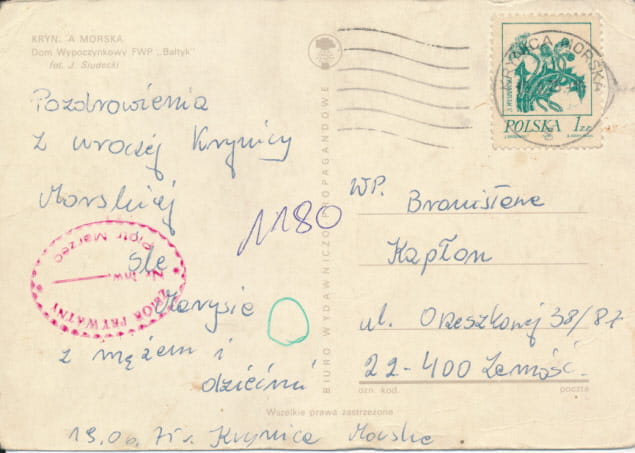 KRYN A MORSKA
Dom Wypoczynkowy FWP „Bałtyk"
fot. J. Siudecki
Pozdrowienia
z uroczej Krynicy
Morskiej
śle
Marysia
z mężem i
dziećmi
19.06.75r. Krynica Morska
1180
ZBIÓR PRYWATNY
N. inw.
Piotr Marzec
BIURO WYDAWNICZO PROPAGANDOWE
KRYNICA MORSKA
POLSKA 1 ZŁ
WP. Bronisława
Kapłon
ul. Orzeszkowej 38/87
22-400 Zamość.
ozn. kod. poczta
Wszelkie prawa zastrzeżone